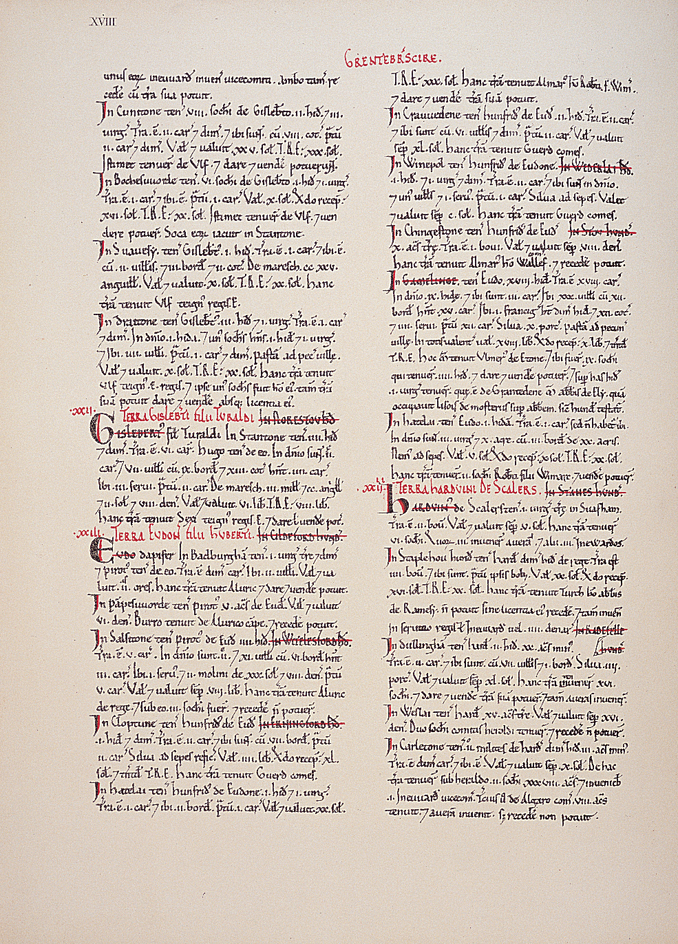 XVIII
GRENTEBR̄SCIRE.
unus eoꝝ ineuuard inuen̄ uicecomiti. Ambo tam̄ re
cedē cū t̄ra sua potuer̄.
In Cunitone ten̄ .VIII. sochi de Gisleb̄to .II. hid̄. 7 III.
uirg̃. T̄ra .ē. II. car̄ 7 dim̄. 7 ibi sunt̄. cū .VIII. cot̄. p̄tū
II. car̄ 7 dim̄. Val̄ 7 ualuit .XX. v. sol̄. T.R.E: XXX. sol̄.
Istimet tenuer̄ de Vlf. 7 dare 7 uendē potuerun̄t.
In Bochesuuorde ten̄ .VI. sochi de Gisleb̄to .I. hid̄ 7 I. uirg̃.
T̄ra .ē. I. car̄. 7 ibi .ē. p̄tū .I. car̄. Val̄ .X. sol̄. Xdo recep̄:
XVI. sol̄. T.R.E: XX. sol̄. Istimet tenuer̄ de Vlf. 7 uen
dere potuer̄. Soca eoꝝ iacuit in Stantone.
In Suauesy. ten̄ Gisleb̄t .I. hid̄. T̄ra .ē. I. car̄. 7 ibi .ē.
cū .II. uillis. 7 III. bord̄ 7 II. cot̄. De maresch. cc XXV.
anguill̄. Val̄ 7 ualuit .X. sol̄. T.R.E: XX. sol̄. Hanc
t̄rā tenuit Vlf teign̄ regis .E.
In Drattone ten̄ Gisleb̄t .III. hid̄ 7 I. uirg̃. T̄ra .ē. I. car̄
7 dim̄. In dn̄io .I. hida. 7 un̄ sochs hn̄s .I. hid̄ 7 I. uirg̃.
7 Ibi .IIII. uilli. p̄tū .I. car̄ 7 dim̄. Pastā ad pec̄ uillę.
Val̄ 7 ualuit .X. sol̄. T.R.E: XX. sol̄. Hanc t̄rā tenuit
Vlf teign̄ .E. regis. 7 ipse un̄ sochs fuit hō ei. tam̄ t̄rā
suā potuit dare 7 uendē absq; licentia ei.
.XXII. TERRA GISLEBTI FILIJ TURALDI. IN NORESTOU HD̄.
GISLEBERT fili⁹ Turaldi. In Stantone ten̄ .IIII. hid̄
7 dim̄. T̄ra .ē. VI. car̄. Hugo ten̄ de eo. In dn̄io sunt̄ .II.
car̄. 7 VII. uilli cū .IX. bord̄ 7 XIII. cot̄ hn̄t .IIII. car̄.
Ibi .III. serui. p̄tū .II. car̄. De maresch. III. mill̄ 7 cc. anguill̄
7 II. sol̄ 7 VIII. den̄. Val̄ 7 ualuit .VI. lib̄. T.R.E: VIII. lib̄.
hanc t̄rā tenuit Sexi teign̄ regis .E. 7 dare 7 uendē pot̄.
.XXIII. TERRA EUDON FILIJ HUBERTI. IN CILDEFORD HUND̄.
EUDO dapifer In Badburgh̄a ten̄ .I. uirg̃ t̄rę 7 dim̄
7 pirot ten̄ de eo. T̄ra .ē. dim̄ car̄. Ibi .II. uilli. Val̄ 7 ua
luit .II. ores. hanc t̄rā tenuit Aluric 7 dare 7 uendē potuit.
In Papesuuorde ten̄ pirot .V. ac̄s de Eud̄. Val̄ 7 ualuit
VI. den̄. Burro tenuit de Alurico cāpe. 7 recedē potuit.
In Salstone ten̄ pirot de Eud̄ .IIII. hid̄. IN WITELESFORD HD̄.
T̄ra .ē. V. car̄. In dn̄io sunt̄ .II. 7 XI. uilli cū .VI. bord̄ hn̄t
III. car̄. Ibi .I. seru⁹ 7 II. molini de .XXX. sol̄ 7 VIII. den̄. p̄tū
V. car̄. Val̄ 7 ualuit sēp .VIII. lib̄. hanc t̄rā tenuit Aluric
de rege. 7 sub eo .III. sochi fuer̄. 7 recedē n̄ potuer̄.
In Cloptune ten̄ hunfrid̄ de Eud̄. IN ERNINGFORD HD̄.
.I. hid̄ 7 dim̄. T̄ra .ē. II. car̄. 7 ibi sun̄t cū .VII. bord̄. p̄tū
II. car̄ Silua ad sepes refic̄. Val̄ .IIII. lib̄. Xdo recep̄: XL.
sol̄. 7 tn̄tđ T.R.E. Hanc t̄rā tenuit Guerd comes.
In hatelai ten̄ hunfrid̄ de Eudone .I. hid̄ 7 I. uirg̃.
T̄ra .ē. I. car̄. 7 ibi .II. bord̄. p̄tū .I. car̄. Val̄ 7 ualuit .XX. sol̄.
T.R.E: XXX. sol̄. Hanc t̄rā tenuit Almar̄ hō Rob̄ti. f. Wim̄.
7 dare 7 uendē t̄rā suā potuit.
In Crauuedene ten̄ hunfrid̄ de Eud̄ .II. hid̄. T̄ra .ē. II. car̄.
7 ibi sunt cū .VI. uillis 7 dim̄. p̄tū .II. car̄. Val̄ 7 ualuit
sēp .XL. sol̄. hanc t̄rā tenuit Guerd comes.
In Winepol ten̄ hunfrid̄ de Eudone. IN WEDERLAI HD̄.
.I. hid̄. 7 I. uirg̃ 7 dim̄. T̄ra .ē. II. car̄ 7 ibi sunt in dn̄io.
7 un̄ uills 7 I. seru⁹. p̄tū .I. car̄. Silua ad sepes. Valet
7 ualuit sēp .C. sol̄. Hanc t̄rā tenuit Guerd comes.
In Chingestone ten̄ hunfrid̄ de Eud̄ IN STOU HUND̄.
X. ac̄s t̄rę. T̄ra .ē. I. boui. Val̄ 7 ualuit sēp .VIII. den̄.
hanc t̄rā tenuit Almar hō Wallef. 7 recedē potuit.
In GAMELINGE. ten̄ Eudo .XVIII. hid̄. T̄ra .ē. XVIII. car̄.
In dn̄io .IX. hidę. 7 ibi sunt .III. car̄. Ibi .XXX. uilli cū .XII.
bord̄ hn̄t .XV. car̄. Ibi .I. francig̃ ht̄ dim̄ hid̄. 7 XII. cot̄.
7 IIII. serui. p̄tū XII. car̄. Silua .X. porc̄. Pasta ad pecun̄
uillę. In totis ualent̄ ual̄ .XVIII. lib̄. Xdo recep̄: X. lib̄. 7 thc̄d̄
T.R.E. hoc m̄ tenuit Vlmer⁹ de Etone. 7 ibi fuer̄ .IX. sochi
qui tenuer̄ .IIII. hid̄. 7 dare 7 uendē potuer̄. 7 sup has hid̄
.I. uirg̃ tenuer̄. que .ē. de Grantedene m̄ abb̄is de Ely. quā
occupauit lisois de mosteriis sup abbem. sic hund̄ testat̄.
In hatelai ten̄ Eudo .I. hidā. T̄ra .ē. I. car̄. sed n̄ habet̄ ibi.
In dn̄io sunt .III. uirg̃ 7 X. agr̄. cū .III. bord̄ de .XX. acris.
Nem̄ ad sepes. Val̄ .V. sol̄. Xdo recep̄: X. sol̄. T.R.E: XX. sol̄.
hanc t̄rā tenuer̄ .II. sochi Rob̄ti filij Wimarc. 7 uendē potuer̄.
.XXIIII. TERRA HARDUINI DE SCALERS. IN STANES HUND̄.
HARDUIN⁹ de Scalers ten̄ .I. uirg̃ in Suafam.
T̄ra .ē. II. bou. Val̄ 7 ualuit sēp .V. sol̄. hanc t̄rā tenuer̄
VI. sochi. Xuoꝝ .III. inuener̄ auerā. 7 alii .III. Ineuuardos.
In Stapleho. hund̄ ten̄ hard̄ dim̄ hid̄ de rege. T̄ra est
.IIII. bou. 7 ibi sun̄t. p̄tū ipsis bob⁹. Val̄ .XX. sol̄. Xdo recep̄:
XVI. sol̄. T.R.E: XX. sol̄. hanc t̄rā tenuit Turch̄ hō abb̄is
de Ramesy. n̄ potuit sine licentia ei⁹ recedē. 7 tam̄ inuen̄
in seruitio regis .I. Ineuuard uel .IIII. denar̄. IN RADEFELLE
In Dullingh̄a ten̄ hard̄ .II. hid̄. XX. ac̄s min⁹. HUND̄.
T̄ra .ē. IIII. car̄. 7 ibi sun̄t. cū .VII. uillis 7 I. bord̄. Silua .IIII.
porc̄. Val̄ 7 ualuit sēp .XL. sol̄. Hanc t̄rā tenuer̄ .XVI.
sochi. 7 dare 7 uendē t̄rā suā potuer̄. 7 tam̄ aueras inuener̄.
In Weslai ten̄ hard̄ .XV. ac̄s t̄rę. Val̄ 7 ualuit sēp .XVI.
den̄. Duo sochi comitis heraldi tenuer̄. 7 recedē n̄ potuer̄.
In Carletone. ten̄ .II. milites de hard̄ dim̄ hid̄ .III. ac̄s min⁹
T̄ra .ē. dim̄ car̄. 7 ibi .ē. Val̄ 7 ualuit sēp .X. sol̄. De hac
t̄ra tenuer̄ sub heraldo .II. sochi .XXXVIII. ac̄s. 7 inuenieb̄
.I. Ineuuard uicecom̄. Tcius sub Algaro com̄. VIII. ac̄s
tenuit. 7 auerā inuenit. Sꝫ recedē non potuit.